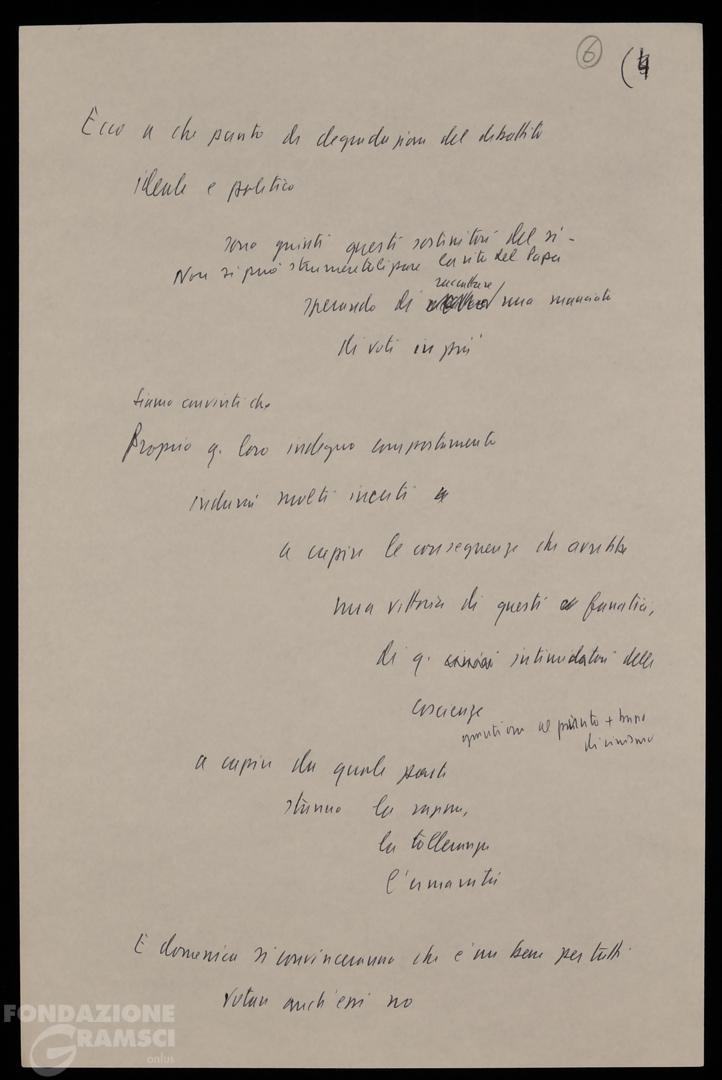 6
(4
Ecco a che punto di degradazione del dibattito
ideale e politico
sono giunti questi sostenitori del sì -
Non si può strumentalizzare la vita del Papa
raccattare
sperando di una manciata
di voti in più
Siamo convinti che
Proprio q. loro indegno comportamento
indurrà molti incerti
a capire le conseguenze che avrebbe
una vittoria di questi fanatici,
di q. cinici intimidatori delle
coscienze
al punto + basso
di cinismo
a capire da quale parte
stanno la ragione,
la tolleranza
l'umanità
E domenica si convinceranno che è un bene per tutti
votare anch'essi no
FONDAZIONE
GRAMSCI
onlus